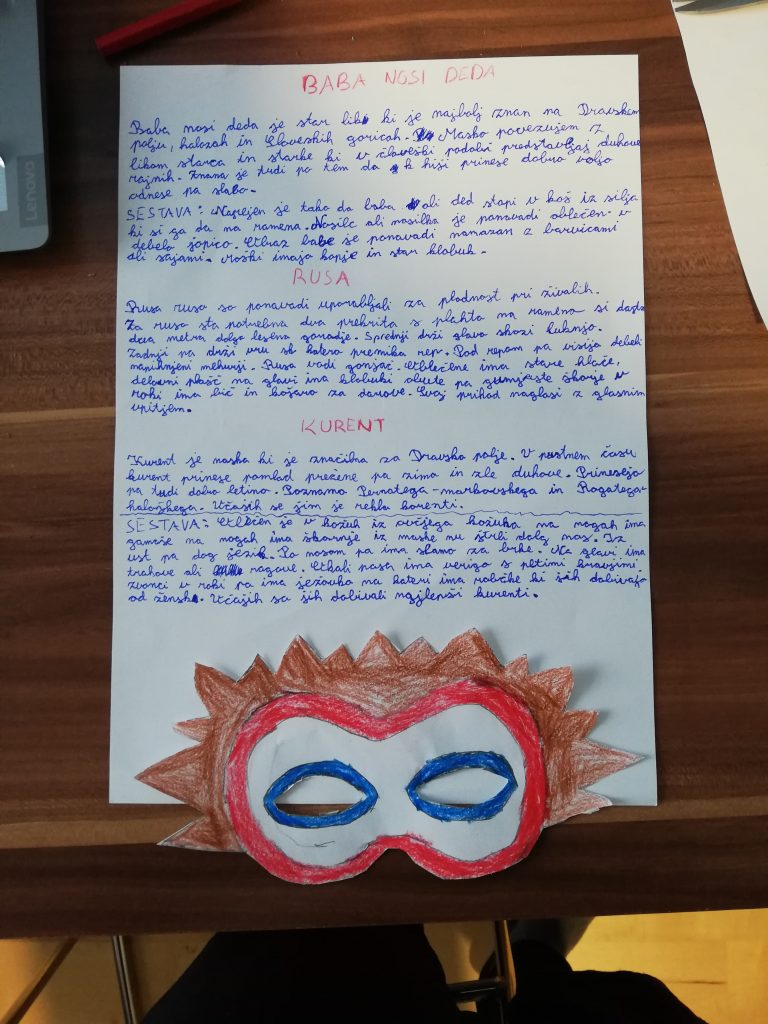 Lenovo
BABA NOSI DEDA
Baba nosi deda je star lik ki je najbolj znan na Dravskem
polju, halozah in Slovenskih goricah. Masko povezujem z
likom starca in starke ki v človeški podobi predstavljaš duhove
rajnih. Znana je tudi po tem da k hiši prinese dobro voljo
odnese pa slabo.
SESTAVA: Narejen je tako da baba ali ded stopi v koš iz šilja
ki si ga da na ramena. Nosilc ali nosilka je ponavadi oblečen v
debelo jopico. Obraz babe je ponavadi namazan z barvicami
ali sajami. moški imajo kapje in star klobuk.
RUSA
Rusa ruso so ponavadi uporabljali za plodnost pri živalih.
Za ruso sta potrebna dva prekrita s plahto na ramena si dasta
dva metra dolgo leseno ogrodje. Sprednji drži glavo skozi luknjo.
Zadnji pa drži vrv s katero premika rep. Pod repom pa visijo debeli
napihnjeni mehurji. Ruso vodi gonjač. Oblečene ima stare hlače,
delovni plašč na glavi ima klobuk obute pa gumjaste škorje v
roki ima bič in košaro za darove. Svoj prihod naglasi z glasnim
vpitjem.
KURENT
Kurent je maska ki je značilna za Dravsko polje. V pustnem času
kurent prinese pomlad prežene pa zimo in zle duhove. Prinesejo
pa tudi dobro letino. Poznamo Pernatega-markovskega in Rogatega-
haloškega. Včasih se jim je reklo korenti.
SESTAVA: Oblečen je v kožuh iz ovčjega kožuha na nogah ima
gamaše na nogah ima škornje iz maske mu štrli dolg nos. Iz
ust pa dog jezik. Po nosom pa ima slamo za brke. Na glavi ima
trakove ali rogove. Okoli pasa ima verigo s petimi kravjimi
zvonci v roki pa ima ježovko na kateri ima robčke ki jih dobivajo
od žensk. Včasih so jih dobivali najlepši kurenti.